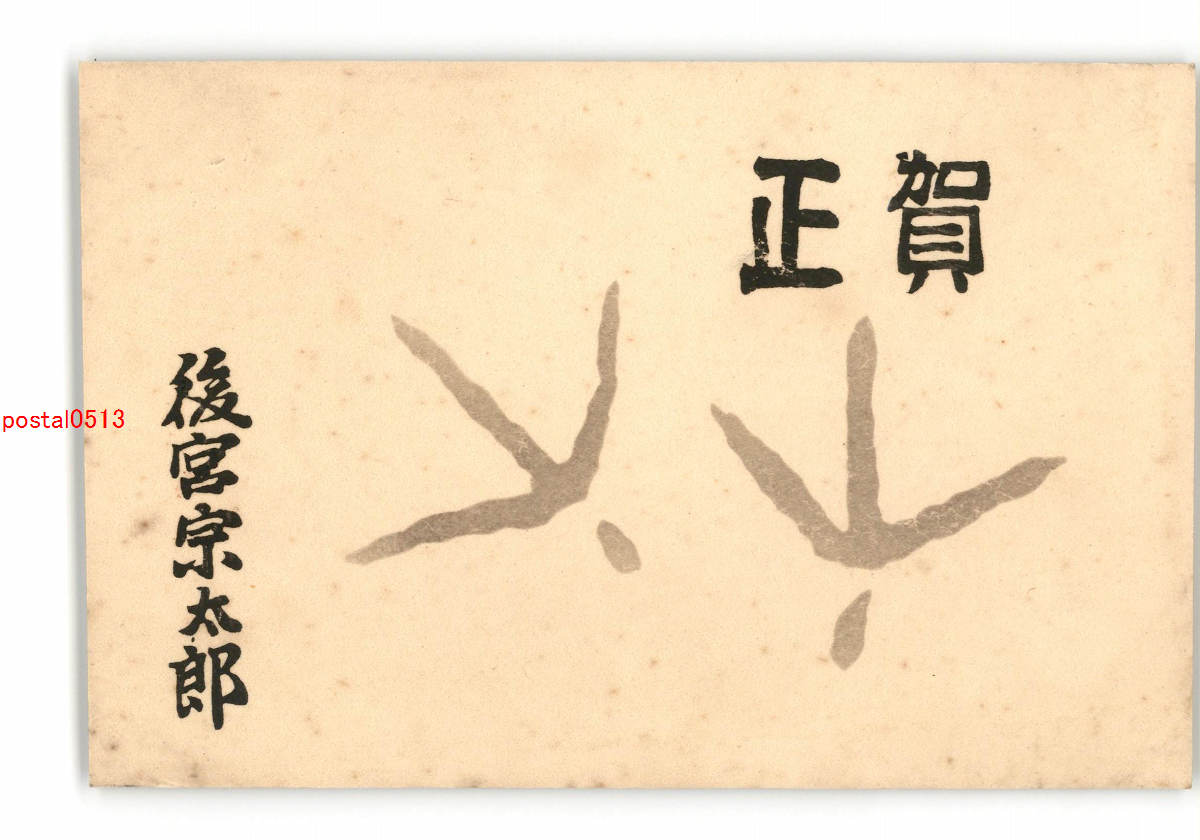 賀正
後宮宗太郎
postal0513